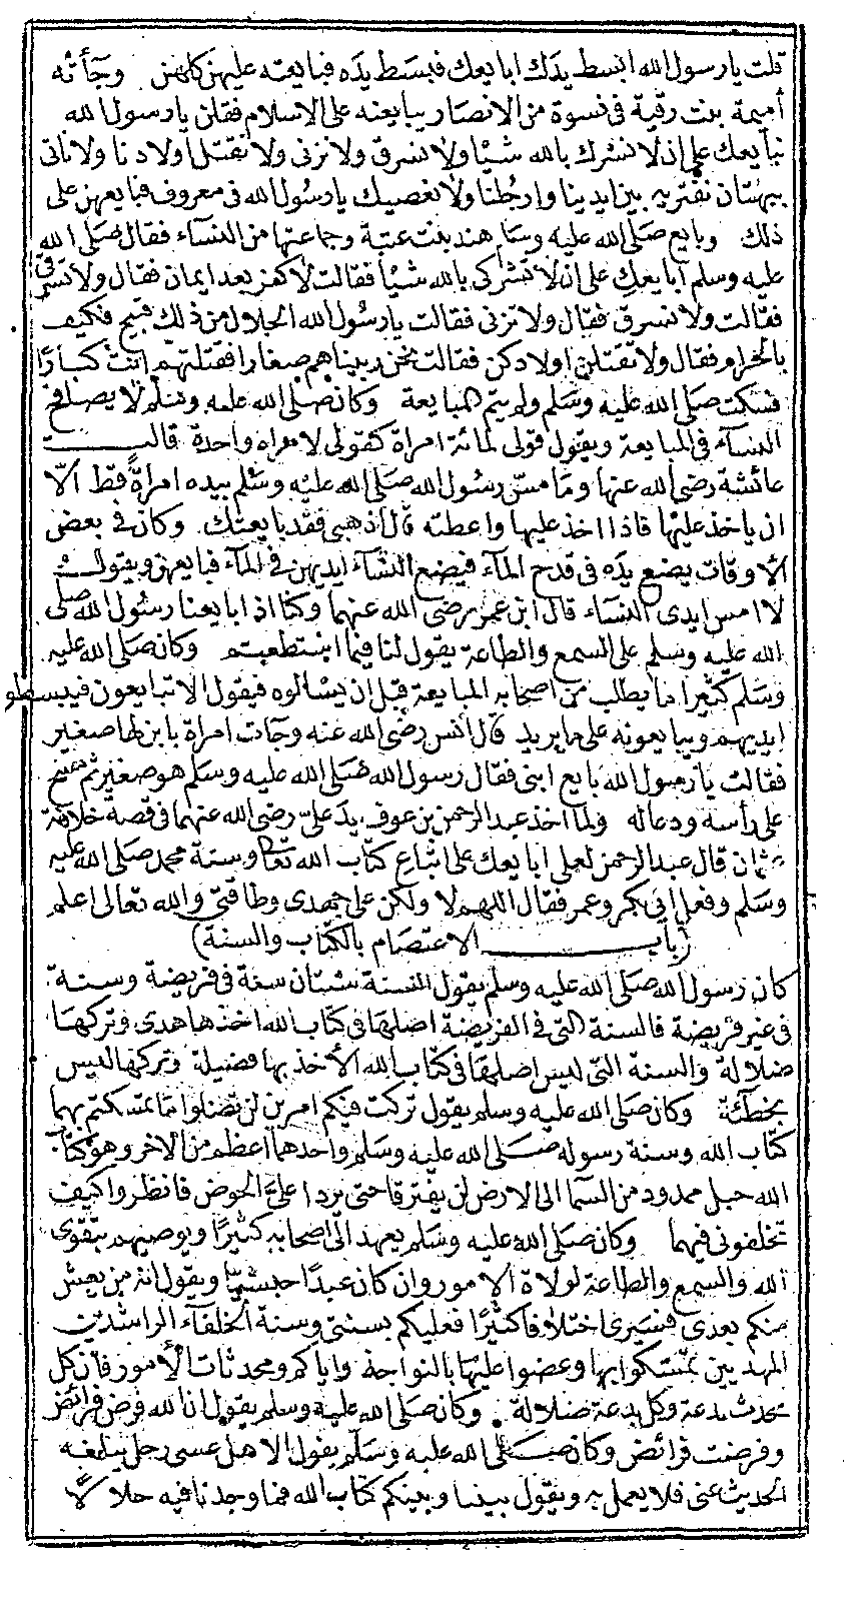 قلت يا رسول الله ابسط يدك ابايعك فبسط يده فبايعته عليهن كلهن وجأته
أميمة بنت رقية في نسوة من الانصار يبايعنه على الاسلام فقلن يا رسول الله
نبايعك على ان لا نشرك بالله شيئا ولا نسرق ولا نزنى ولا نقتل اولادنا ولا ناتى
ببهتان نفتريه بين ايدينا وارجلنا ولا نعصيك يا رسول الله في معروف فبايعهن على
ذلك وبايع صلى الله عليه وسلم هند بنت عتبة وجماعتها من النسآء فقال صلى الله
عليه وسلم ابايعك على ان لا تشركى بالله شيئا فقالت لا كفر بعد ايمان فقال ولا تسرقى
فقالت ولا نسرق فقال ولا تزنى فقالت يا رسول الله الحلال من ذلك قبيح فكيف
بالحرام فقال ولا تقتلن اولادكن فقالت نحن ربيناهم صغارا فقتلتهم انت كبارًا
فسكت صلى الله عليه وسلم ولم يتم المبايعة وكان صلى الله عليه وسلم لا يصافح
النسآء في المبايعة ويقول قولى لمائة امرأة كقولى لامراة واحدة قالت
عائشة رضي الله عنها وما مسّ رسول الله صلى الله عليه وسلم بيده امراةً قط الّا
ان ياخذ عليها فاذا اخذ عليها واعطته قال اذهبى فقد بايعتك وكان في بعض
الاوقات يضع يده في قدح المآء فيضع النسآء ايديهن في المآء فبايعهن ويقول
لا امس ايدى النسآء قال ابن عمر رضى الله عنهما وكنا اذا بايعنا رسول الله صلى
الله عليه وسلم على السمع والطاعة يقول لنا فيما استطعتم وكان صلى الله عليه
وسلم كثيرا ما يطلب من اصحابه المبايعة قبل ان يسالوه فيقول الا تبايعون فيبسطو
ايديهم ويبايعونه على ما يريد قال انس رضى الله عنه وجآت امراة بابن لها صغير
فقالت يا رسول الله بايع ابنى فقال رسول الله صلى الله عليه وسلم هو صغير ثم مسح
على رأسه ودعا له ولما اخذ عبد الرحمن بن عوف يد علىّ رضى الله عنهما في قصة خلافة
عثمان قال عبد الرحمن لعلى ابايعك على اتباع كتاب الله تعا وسنة محمد صلى الله عليه
وسلم وفعل ابى بكر وعمر فقال اللهم لا ولكن على جهدى وطاقتى والله تعالى اعلم
(باب الاعتصام بالكتاب والسنة)
كان رسول الله صلى الله عليه وسلم يقول السنة سنتان سنة في فريضة وسنة
في غير فريضة فالسنة التى في الفريضة اصلها في كتاب الله اخذها هدى وتركها
ضلالة والسنة التى ليس اصلها في كتاب الله الأخذ بها فضيلة وتركها ليس
بخطئة وكان صلى الله عليه وسلم يقول تركت فيكم امرين لن تضلوا ما تمسكتم بهما
كتاب الله وسنة رسوله صلى الله عليه وسلم واحدهما اعظم من الآخر وهو كتاب
الله حبل ممدود من السما الى الارض لن يفترقا حتى يردا علىّ الحوض فانظروا كيف
تخلفونى فيهما وكان صلى الله عليه وسلم يعهد الى اصحابه كثيرًا ويوصيهم بتقوى
الله والسمع والطاعة لولاة الامور وان كان عبدًا حبشيًّا ويقول انه من يعش
منكم بعدى فسيرى اختلافا كثيرًا فعليكم بسنتى وسنة الخلفآء الراشدين
المهديين تمسكوا بها وعضوا عليها بالنواجذ واياكم ومحدثات الأمور فان كل
محدث بدعة وكل بدعة ضلالة وكان صلى الله عليه وسلم يقول ان الله فرض فرائض
وفرضت فرائض وكان صلى الله عليه وسلم يقول الا هل عسى رجل يبلغه
الحديث عنى فلا يعمل به ويقول بيننا وبينكم كتاب الله فما وجدنا فيه حلالًا